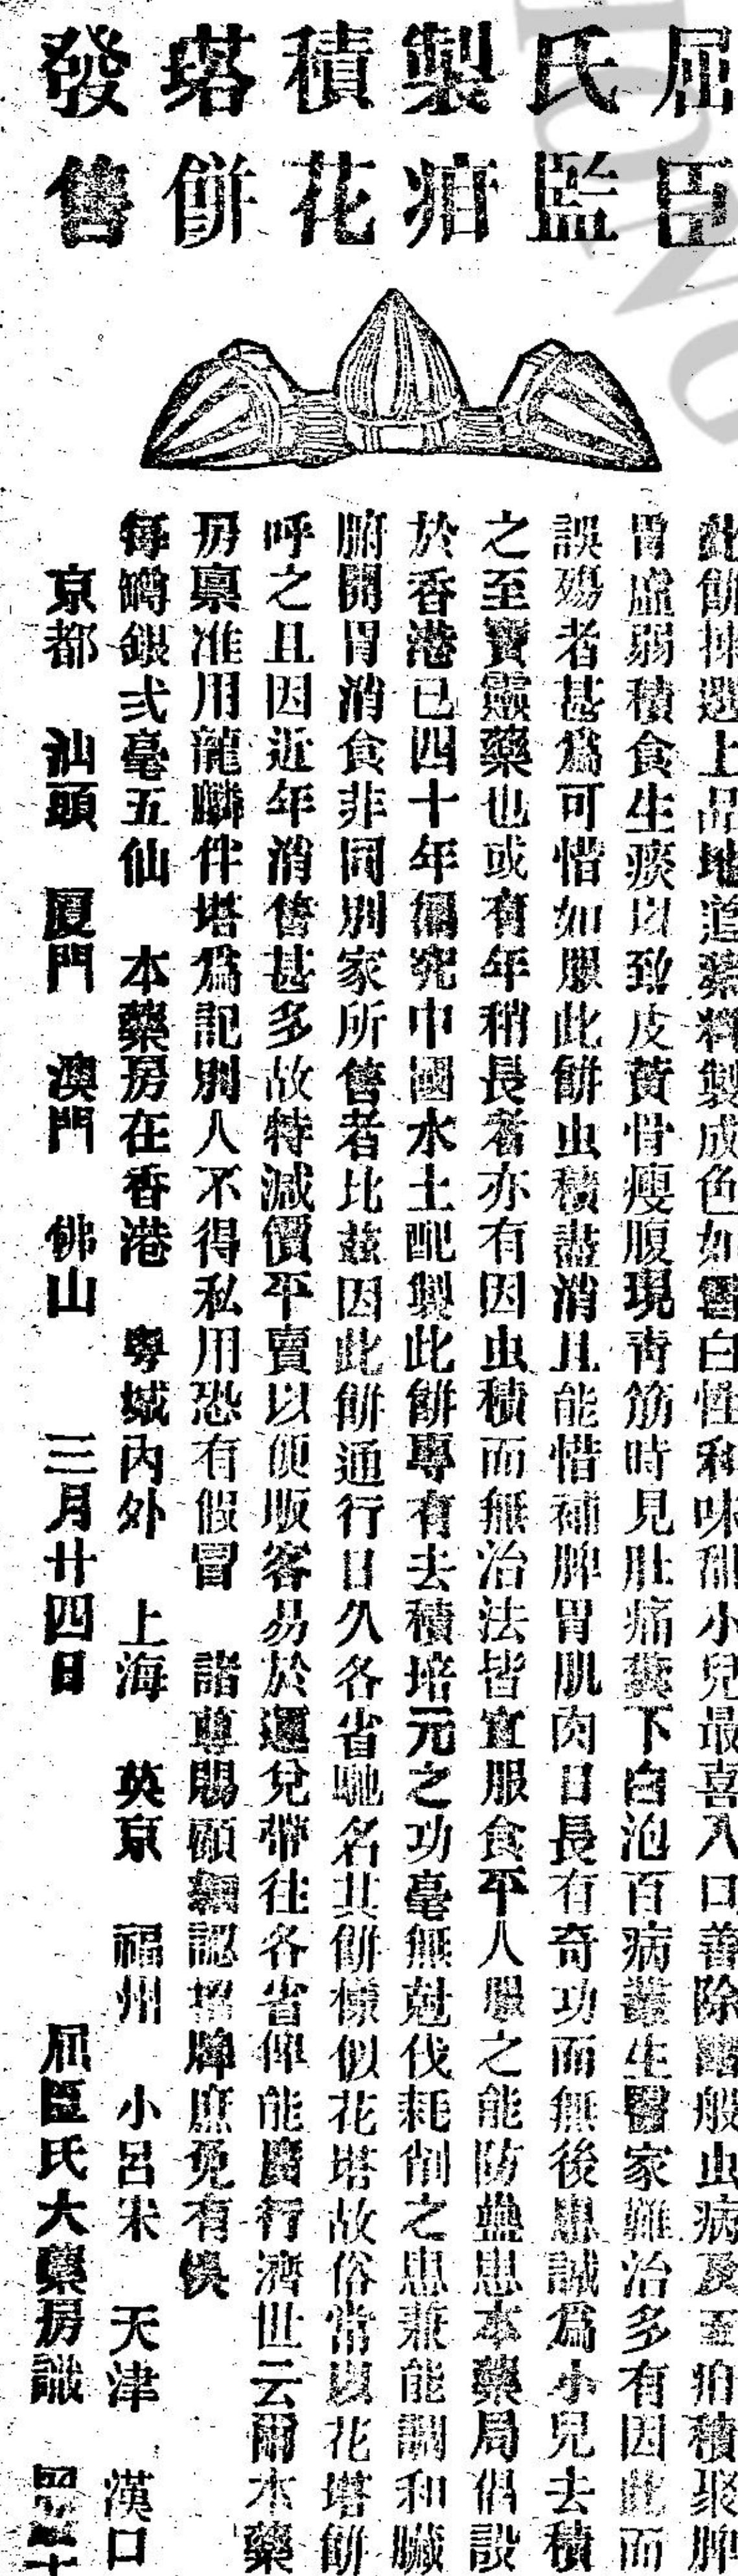 屈臣
氏監
製疳
積花
塔餅
發售
此餅揀選上品地道藥料製成色如雪白性和味甜小兒最喜入口善除諸般虫病及至疳積聚脾
胃虛弱積食生痰以致皮黃骨瘦腹現青筋時見肚痛糞下白泡百病叢生醫家難治多有因此而
誤殤者甚爲可惜如服此餅虫積盡消且能惜補脾胃肌肉日長有奇功而無後患誠爲小兒去積
之至寶靈藥也或有年稍長者亦有因虫積而無治法皆宜服食平人服之能防蠱患本藥局倡設
於香港已四十年講究中國水土配製此餅專有去積培元之功毫無尅伐耗削之患兼能調和臟
腑開胃消食非同別家所售者比茲因此餅通行日久各省馳名其餅樣似花塔故俗常以花塔餅
呼之且因近年消售甚多故特減價平賣以便販客易於運兌帶往各省俾能廣行濟世云爾本藥
房稟准用龍麟伴塔爲記別人不得私用恐有假冒 諸尊賜顧細認招牌庶免有悞
每罇銀弍毫五仙 本藥房在香港 粤城內外 上海 英京 福州 小呂宋 天津 漢口
京都 汕頭 厦門 澳門 佛山 三月廿四日 屈臣氏大藥房識